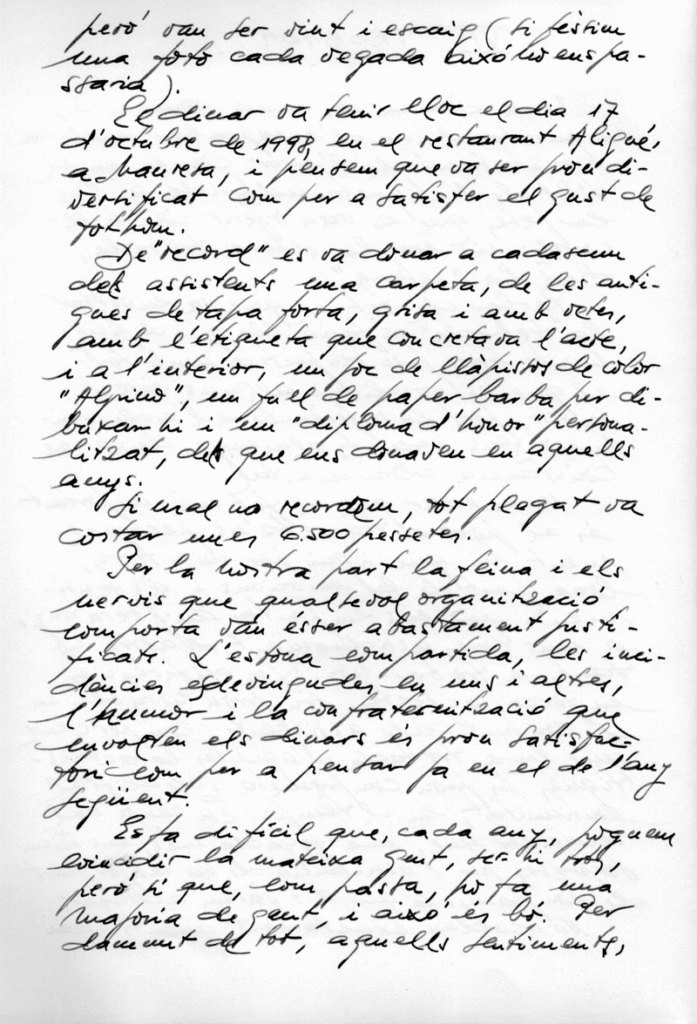 però van ser vint i escaig (si féssim
una foto cada vegada això no ens pa-
ssaria).
El dinar va tenir lloc el dia 17
d'octubre de 1998, en el restaurant Aligué,
a Manresa, i pensem que va ser prou di-
versificat com per a satisfer el gust de
tothom.
De "record" es va donar a cadascun
dels assistents una carpeta, de les anti-
gues de tapa forta, grisa i amb vetes,
amb l'etiqueta que concretava l'acte,
i a l'interior, un joc de llàpissos de color
"Alpino", un full de paper barba per di-
buixar-hi i un "diploma d'honor" persona-
litzat, dels que ens donaven en aquells
anys.
Si mal no recordem, tot plegat va
costar unes 6.500 pessetes.
Per la nostra part la feina i els
nervis que qualsevol organització
comporta van ésser abastament justi-
ficats. L'estona compartida, les inci-
dències esdevingudes en uns i altres,
l'humor i la confraternització que
envolten els dinars és prou satisfac-
tori com per a pensar ja en el de l'any
següent.
Es fa difícil que, cada any, poguem
coincidir la mateixa gent, ser-hi tots,
però si que, com passa, ho fa una
majoria de gent, i això és bó. Per
damunt de tot, aquells sentiments,